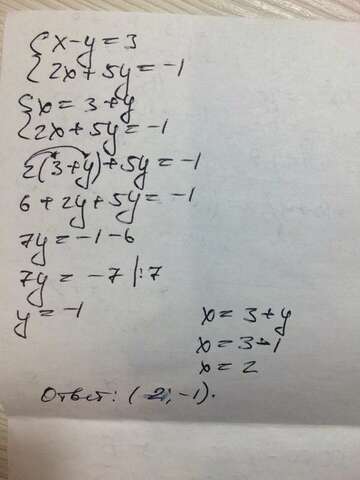 {x-y=3
{2x+5y=-1
{x=3+y
{2x+5y=-1
2(3+y)+5y=-1
6+2y+5y=-1
7y=-1-6
7y=-7 |:7
y=-1
x=3+y
x=3-1
x=2
Ответ: (2; -1).